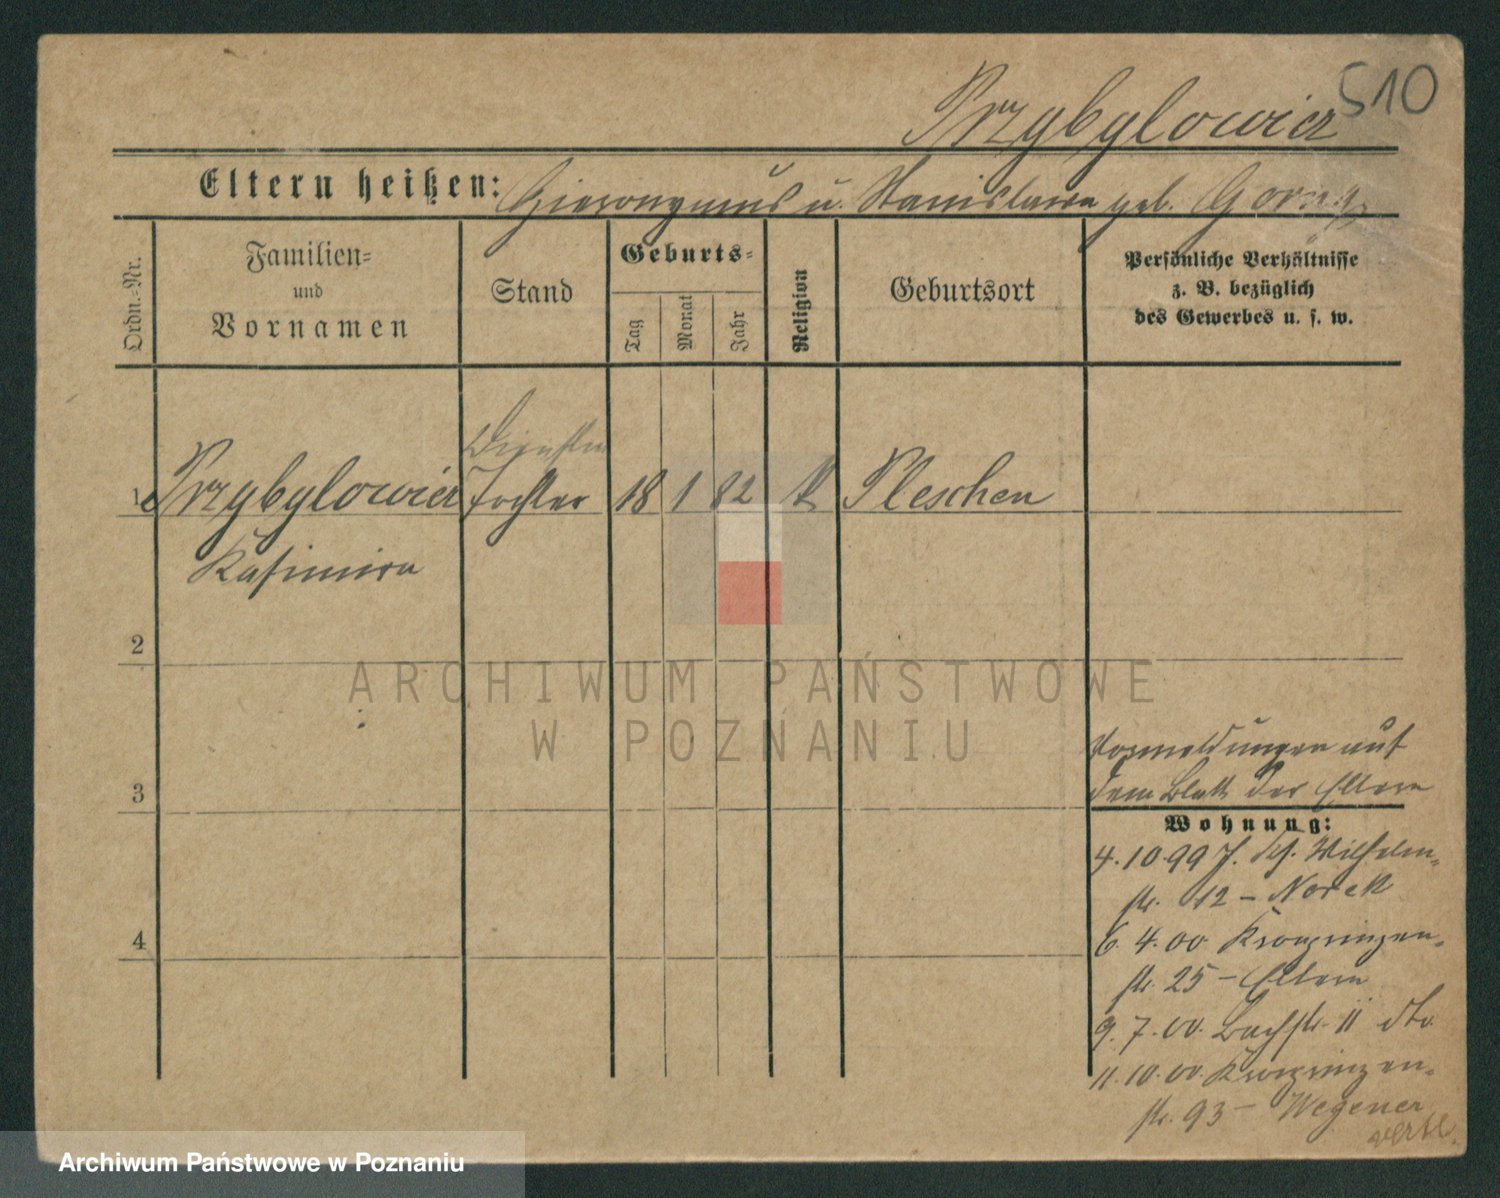 510
Przybylowicz
Eltern heißen: Hieronymus u. Stanislawa geb.
Ordn.-Nr.
Familien-
und
Vornamen
Stand
Geburts-
Tag
Monat
Jahr
Religion
Geburtsort
Persönliche Verhältnisse
z. B. bezüglich
des Gewerbes u. s. w.
1 Przybylowicz Tochter 18 1 82 k Pleschen
Kasimira
2
3
4
Vormeldungen auf
dem Blatt der Eltern
Wohnung:
4.10.99 Wilhelm-
str. 12 – Norek
6.4.00 Kronprinzen-
str. 25 – Eltern
9.7.00. Bachstr. 11 dto
11.10.00. Kronprinzen-
str. 93 – Wegener
ARCHIWUM PAŃSTWOWE
W POZNANIU
Archiwum Państwowe w Poznaniu